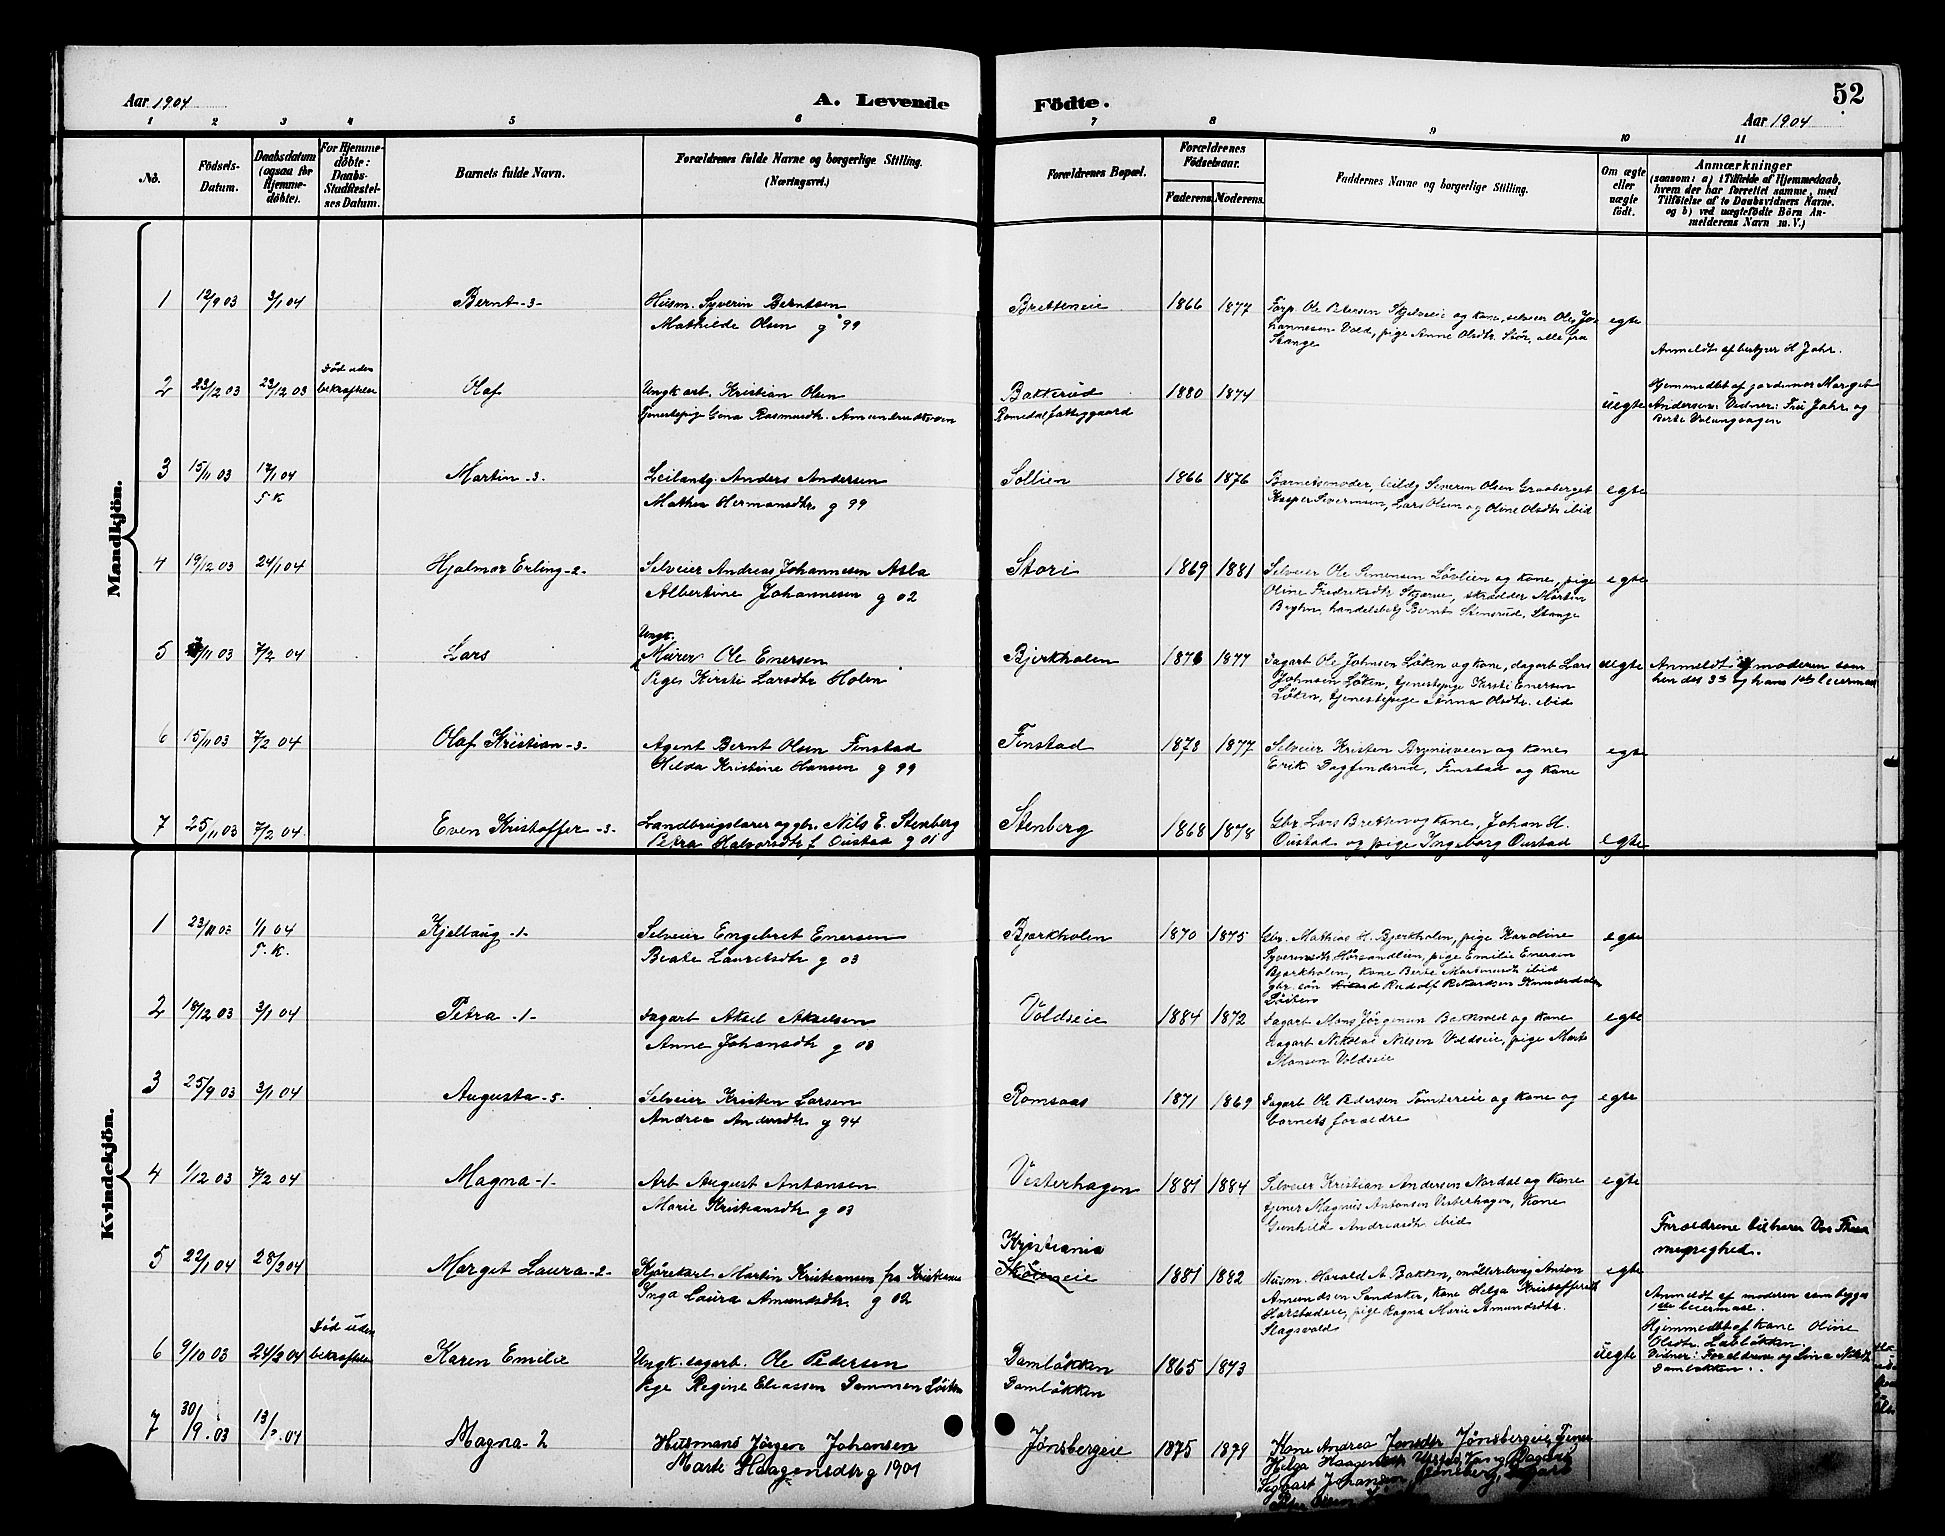 Aar 1904
A. Levende
Födte.
52
Aar 1904
1 2 3 4 5 6 7 8 9 10 11
No.
Födsels-
Datum.
Daabsdatum
(ogsaa for
Hjemme-
døbte).
For Hjemme-
døbte:
Daabs-
Stadfæstel-
ses Datum.
Barnets fulde Navn.
Forældrenes fulde Navne og borgerlige Stilling.
(Næringsvei.)
Forældrenes Bopæl.
Forældrenes
Födselsaar.
Faderens. Moderens.
Faddernes Navne og borgerlige Stilling.
Om ægte
eller
uægte
født.
Anmærkninger
(saasom: a) i Tilfælde af Hjemmedaab,
hvem der har forrettet samme, med
Tilföielse af to Daabsvidners Navne.
og b) ved uægtefödte Börn An-
melderens Navn m. V.)
Mandkjön.
1 12/9 03 3/1 04 Bernt -3- Husm. Syverin Berntsen
Mathilde Olsen g 99
Bretteneie 1866 1877 Forp. Ole Petersen Skjelveie og kone, selveier Ole Jo-
hannesen Vold, pige Anne Olsdtr. Stör, alle fra
Stange
egte
Anmeldt af bestyrer H Jahr.
2 23/12 03 23/12 03 Död uden
bekræftelse
Olaf Ungk. arb. Kristian Olsen
Tjenestepige Gena Rasmusdtr. Amundrudsveen
Bakkerud
Romedal fattiggaard
1880 1874 uegte
Hjemmedbt af jordemor Marget
Andersen. Vidner: Thii Jahr og
Berte Volungsagen
3 15/11 03 17/1 04
T K
Martin -3- Leilændg. Anders Andersen
Mathea Hermansdtr g 99
Sollien 1866 1876 Barnets moder, leildg Severin Olsen Graaberget
Kasper Severinsen, Lars Olsen og Oline Olsdtr ibid
egte
4 19/12 03 24/1 04 Hjalmar Erling -2- Selveier Andreas Johannesen Asla
Albertine Johannesen g 02
Stori 1869 1881 Selveier Ole Simensen Lövlien og kone, pige
Oline Fredriksdtr Skjerve, skrædder Martin
Bryhn, handelsbetj Bernt Stensrud, Stange
egte
5 /11 03 7/2 04 Lars Ungk.
Murer Ole Enersen
Piges Kirsti Larsdtr Holen
Bjerkholen 1876 1877 Dagarb Ole Johnsen Løken og kone, dagarb Lars
Johnsen Løken, tjenestepige Kirsti Enersen
Løken, tjenestepige Anna Olsdtr. ibid
uegte
Anmeldt af moderen som
hendes 3die og hans 1ste leiermaal
6 15/11 03 7/2 04 Olaf Kristian -3- Agent Bernt Olsen Finstad
Hilda Kristine Hansen g 99
Finstad 1878 1877 Selveier Kristen Brynisveen og kone
Erik Dagfinderud, Finstad og kone
egte
7 25/11 03 7/2 04 Even Kristoffer -3- Landbrugslærer og gbr. Nils E. Stenberg
Petra Halvorsdtr f Oustad g 01
Stenberg 1868 1878 Gbr. Lars Bretten og kone, Johan H.
Oustad og pige Ingeborg Oustad
egte
Kvindekjön.
1 23/11 03 1/1 04
T. K.
Kjellaug -1- Selveier Engebret Enersen
Beate Lauritsdtr g 03
Bjerkholen 1870 1875 Gbr. Mathias H. Bjerkholen, pige Karoline
Syverinsdtr Hörsandlien, pige Emilie Enersen
Bjerkholen, kone Berte Martinusdtr ibid
gbr. sön Rudolf Rikardsen
Löiten
egte
2 18/12 03 3/1 04 Petra -1- Dagarb Aksel Akselsen
Anne Johansdtr g 03
Voldseie 1884 1872 Dagarb Mons Jörgensen Bakvold og kone
dagarb Nikolai Nilsen Voldseie, pige Mart
Monsen Voldseie
egte
3 25/9 03 3/1 04 Augusta -5- Selveier Kristen Larsen
Andrea Andersdtr g 94
Romsaas 1871 1869 Dagarb Ole Pedersen Tomtereie og kone og
barnets forældre
egte
4 1/12 03 7/2 04 Magna -1- Arb August Antonsen
Marie Kristiansdtr g 03
Vesterhagen 1881 1884 Selveier Kristian Andersen Nordst og kone
tjener Magnus Antonsen Vesterhagen, kone
Gunhild Andreasdtr ibid
egte
5 22/1 04 28/2 04 Marget Laura -2- Kjörekarl Martin Kristiansen fra Kristiania
Inga Laura Amundsdtr. g 02
Kristiania
1881 1882 Husm. Harald A. Bakken, möllerbrug Anton
Amundsen Sandaker, kone Helga Kristoffersdtr
Horstadeie, pige Ragna Marie Amundsdtr.
Stagsvold
egte
Forældrene tilhører Vor Frue
menighed.
6 9/10 03 24/2 04 Död uden
bekræftelse
Karen Emilie Ungk. dagarb. Ole Pedersen
Pige Regine Eliassen Dammen Löiten
Damløkken
Damløkken
1865 1873 uegte
Anmeldt af moderen som begges
1ste leiermaal.
Hjemmedbt af kone Oline
Olsdtr. Labløkken.
Vidner: Forældrene og Lina Nilsdtr
Damløkken.
7 30/9 .03 13/2 04 Magna -2 Husmans Jørgen Johansen
Marte Haagensdtr g 1901
Jønsbergeie 1875 1879 Kone Andrea Jønsbergeie, Tjener
Helga Haagensen Vang, Dagarb
Sigvart Johansen Jønsberg, Dagarb